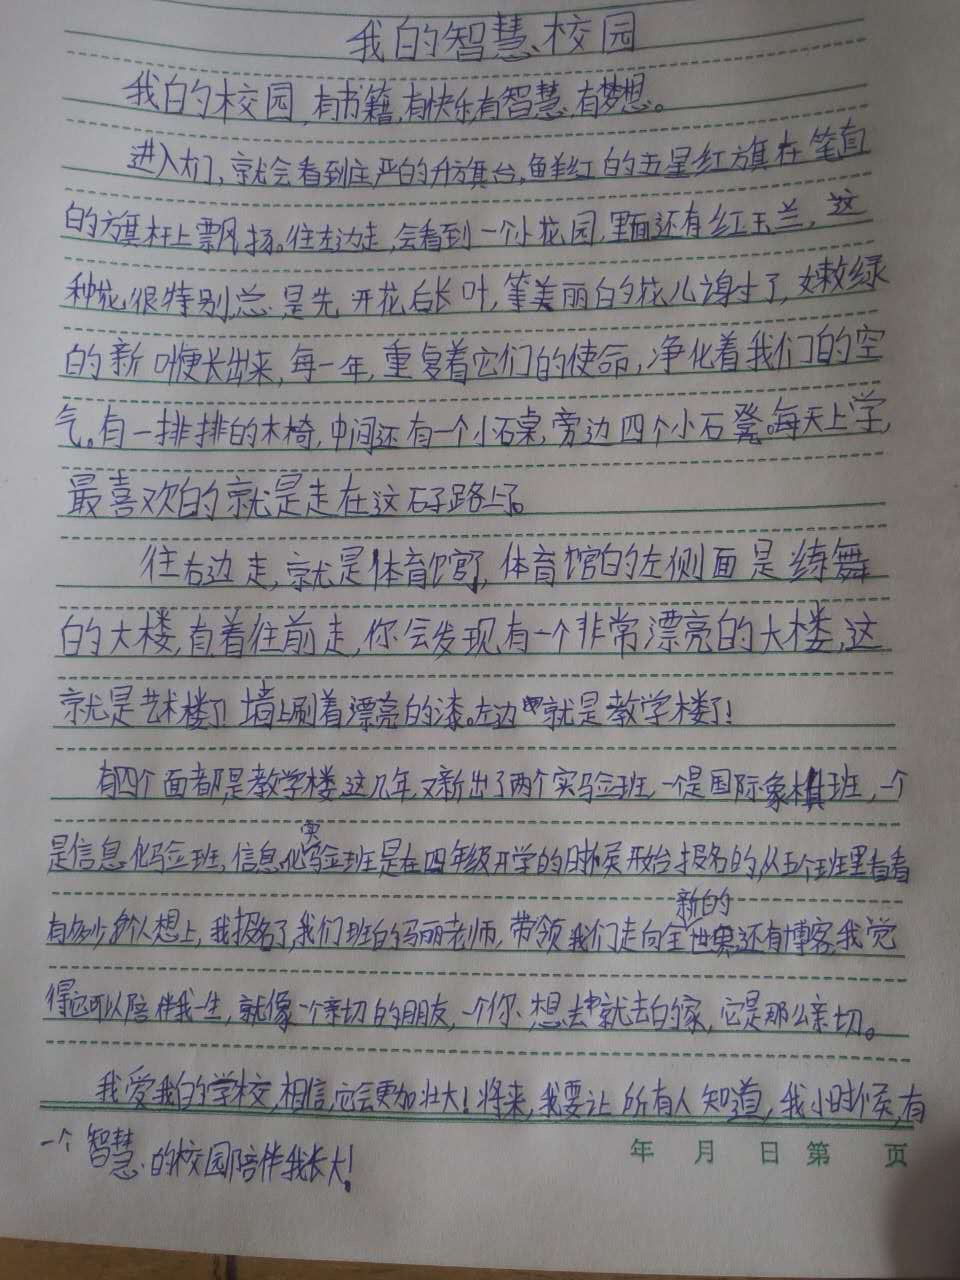 我的智慧校园
我的校园,有书籍,有快乐,有智慧,有梦想。
进入大门,就会看到庄严的升旗台,鲜红的五星红旗在笔直
的旗杆上飘扬。往左边走,会看到一个小花园,里面还有红玉兰,这
种花很特别,总是先开花后长叶,等美丽的花儿谢了,嫩绿
的新叶便长出来,每一年,重复着它们的使命,净化着我们的空
气。有一排排的木椅,中间还有一个小石桌,旁边四个小石凳。每天上学,
最喜欢的就是走在这石子路上了。
往右边走,就是体育馆了,体育馆的左侧面是练舞
的大楼,直着往前走,你会发现有一个非常漂亮的大楼,这
就是艺术楼了!墙上刷着漂亮的漆。左边就是教学楼了!
有四个面都是教学楼,这几年,又新出了两个实验班,一个是国际象棋班,一个
是信息化验班,信息化实验班是在四年级开学的时候开始报名的,从五个班里看看
有多少个人想上,我报名了,我们班的马丽老师,带领我们走向全新的世界,还有博客,我觉
得它可以陪伴我一生,就像一个亲切的朋友,一个你想去就去的家,它是那么亲切。
我爱我的学校,相信,它会更加壮大!将来,我要让所有人知道,我小时候,有
一个智慧的校园陪伴我长大!
年 月 日 第 页